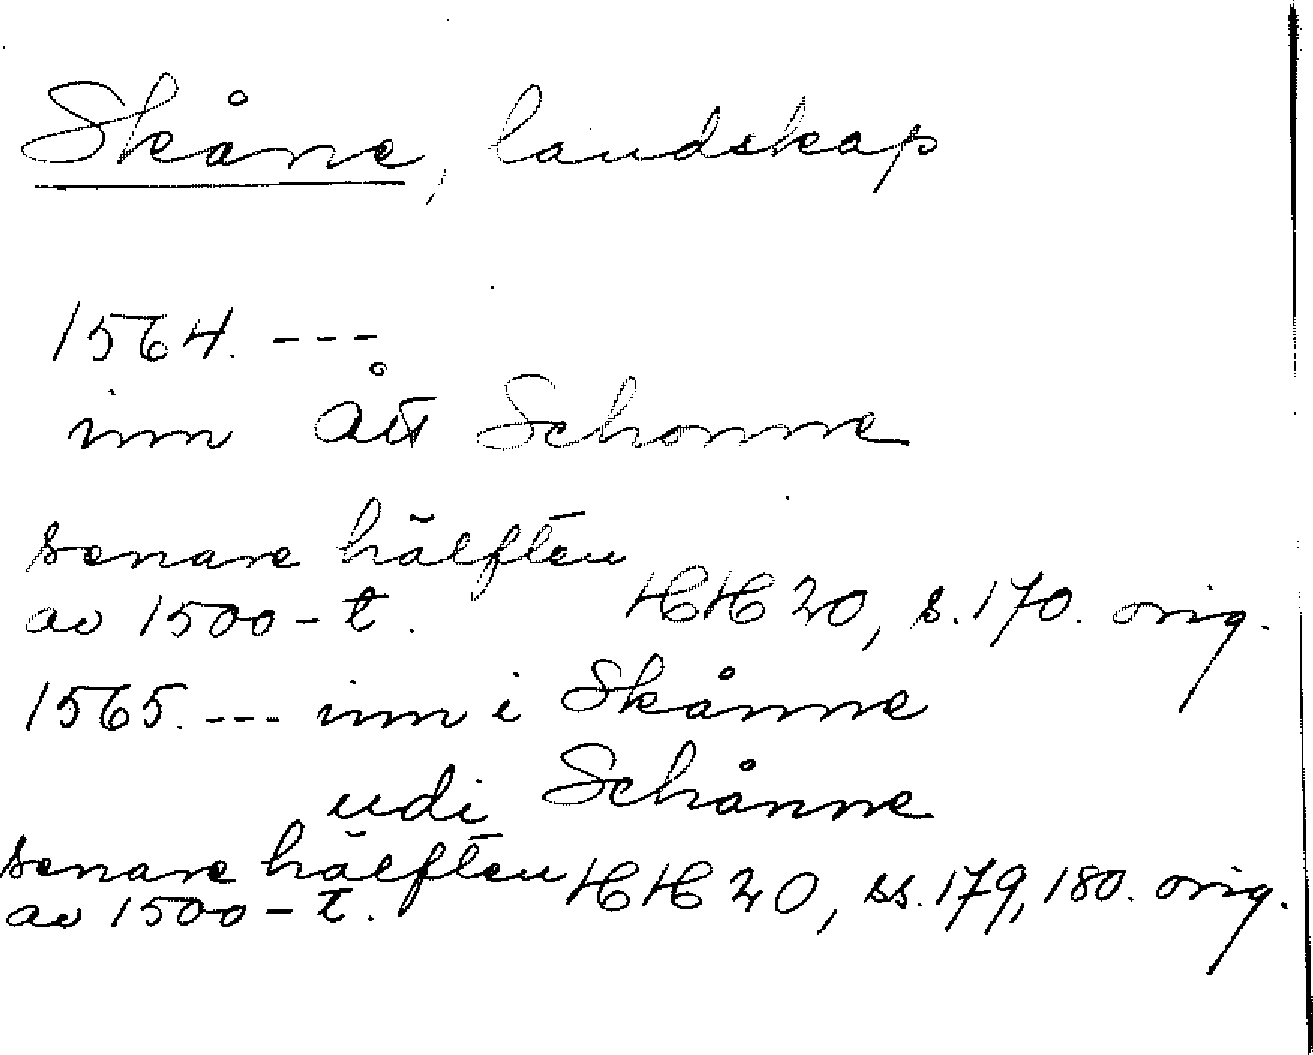 Skåne, landskap
1564. ---
inn ått Schonne
senare hälften
av 1500-t. HH 20, s. 170. orig.
1565. --- inn i Skånne
udi Schånne
senare hälften HH 20, ss. 179, 180. orig.
av 1500-t.